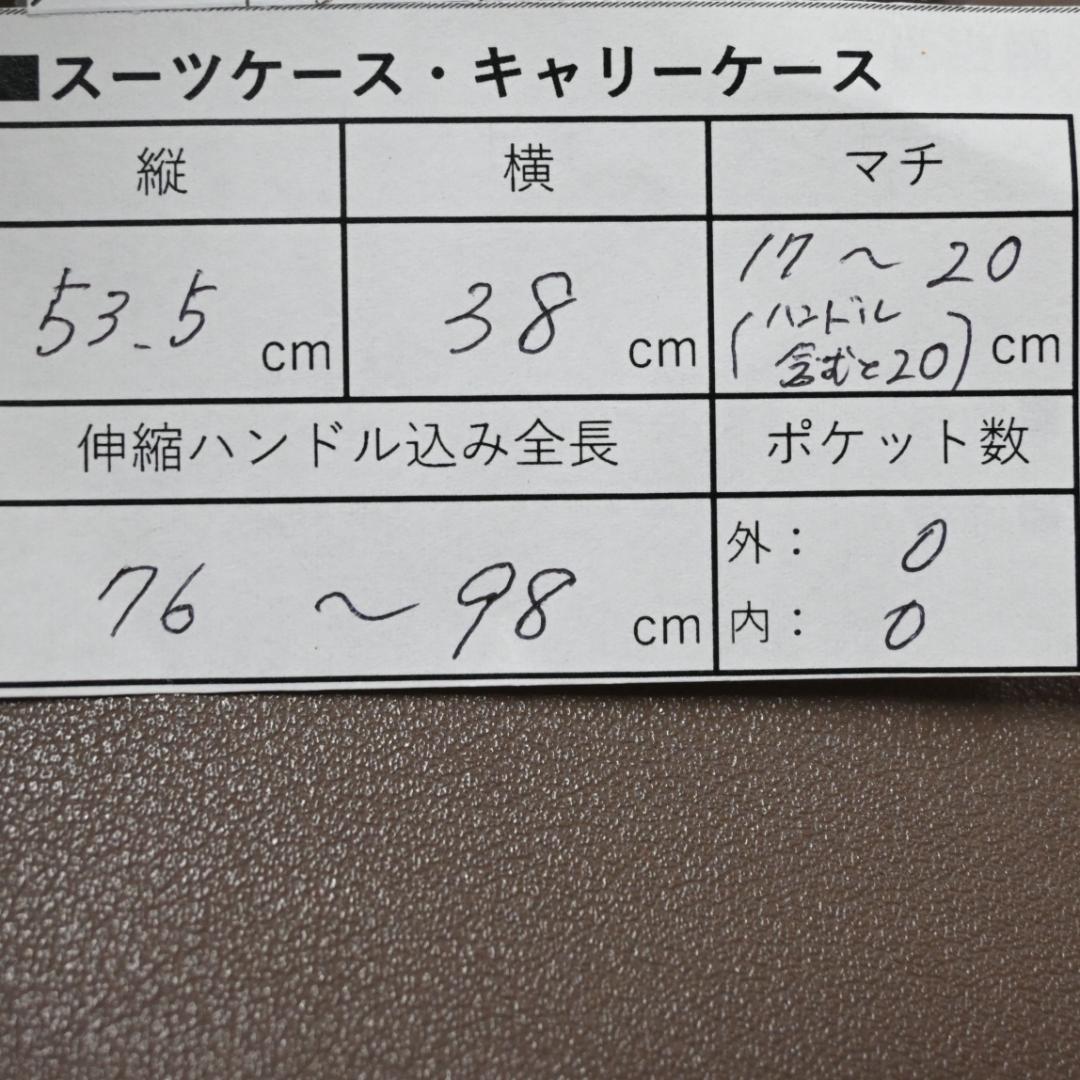 ■スーツケース・キャリーケース
縦 横 マチ
53.5 cm 38 cm 17～20 (ハンドル含むと20) cm
伸縮ハンドル込み全長 ポケット数
76 ～ 98 cm
外： 0
内： 0